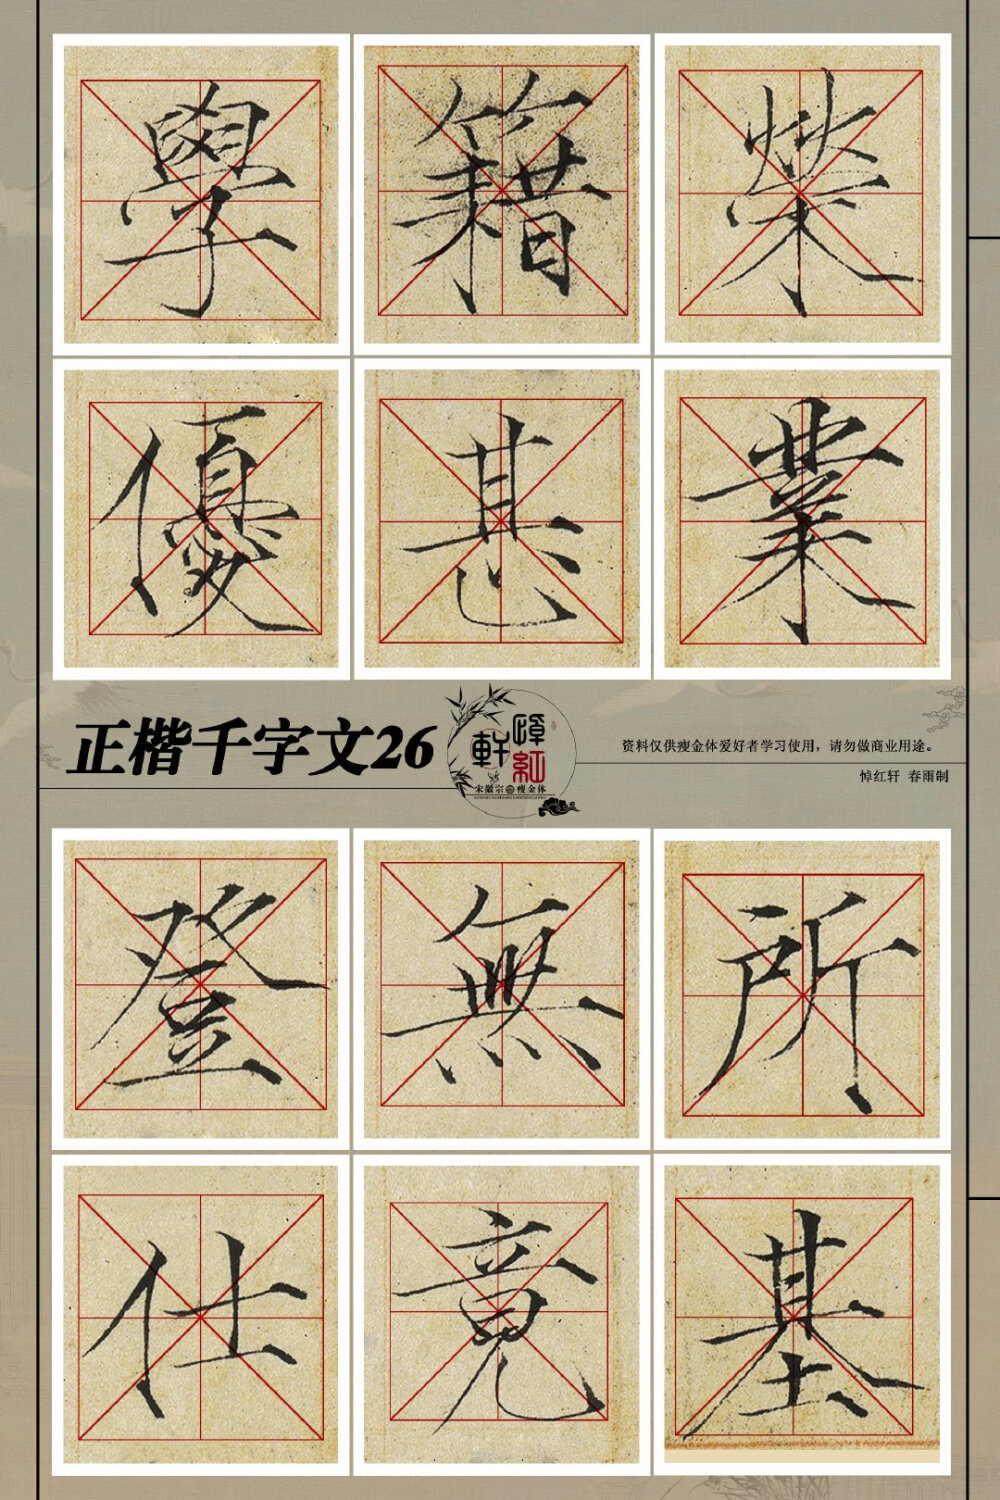 學 籍 榮
優 甚 業
正楷千字文26
悼紅軒
宋徽宗 瘦金体
资料仅供瘦金体爱好者学习使用，请勿做商业用途。
悼红轩 春雨制
登 無 所
仕 竟 基